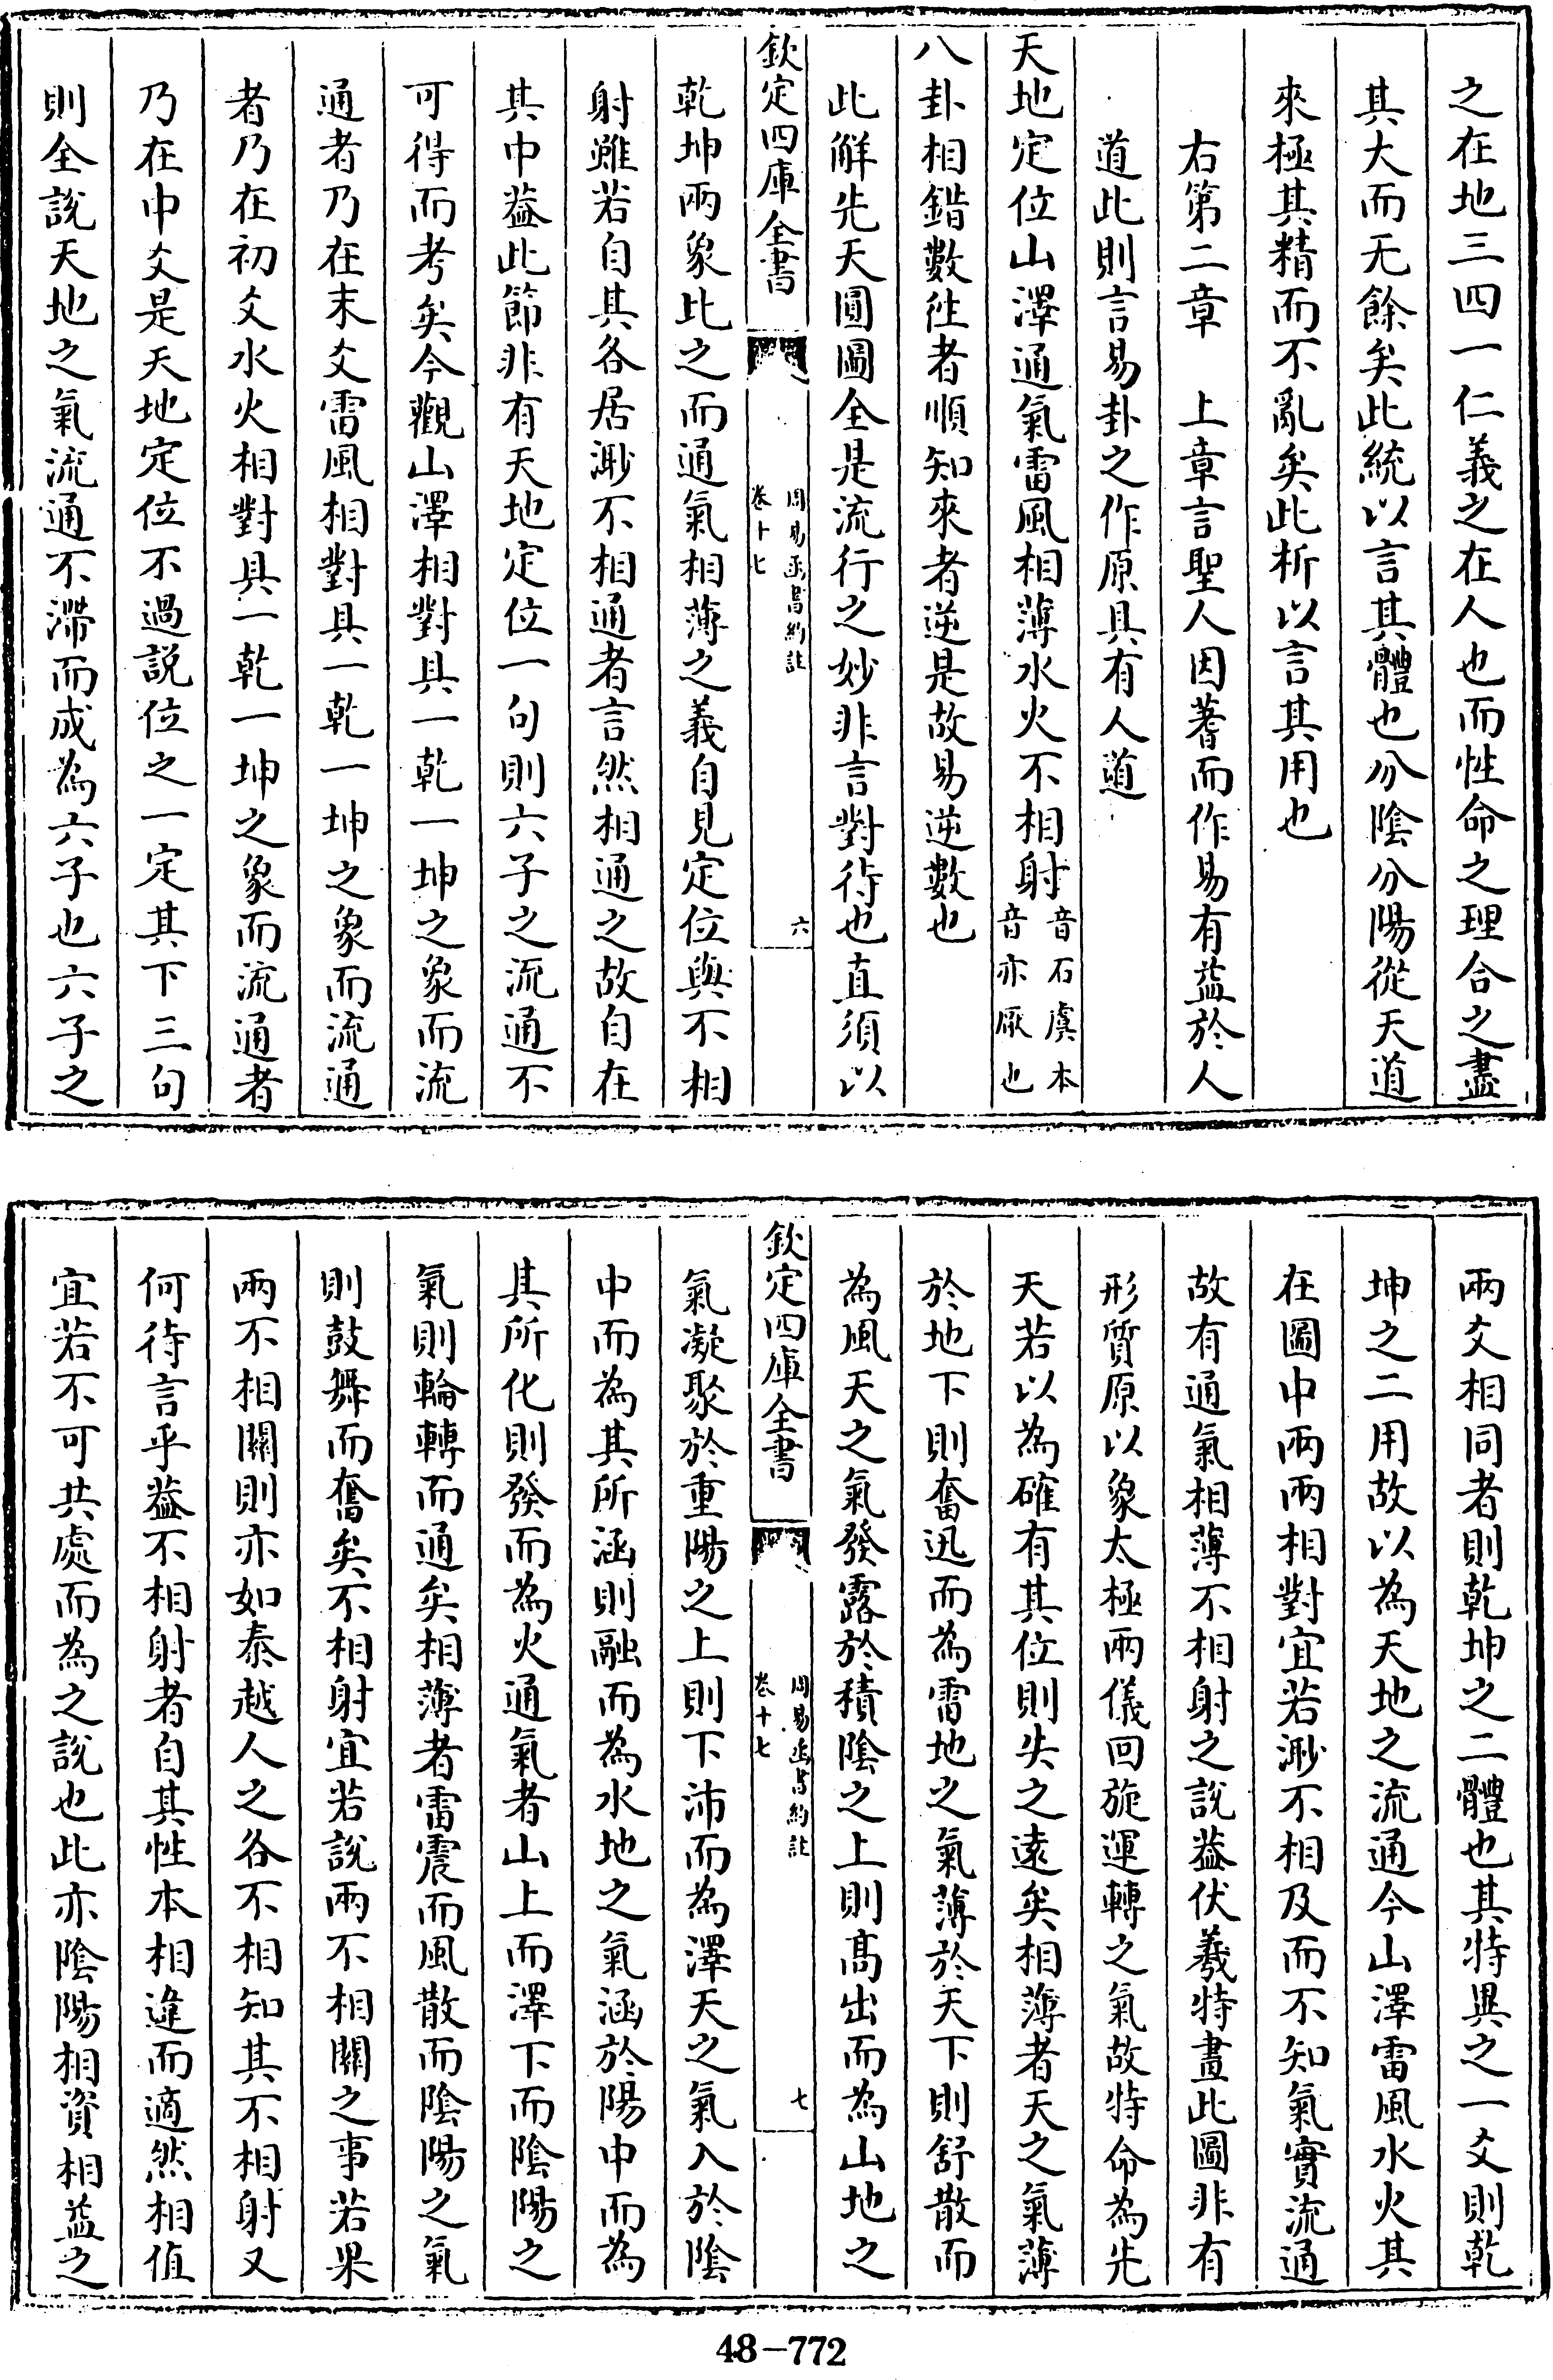 之在地三四一仁義之在人也而性命之理合之盡
其大而无餘矣此統以言其體也分陰分陽從天道
來極其精而不亂矣此析以言其用也
右第二章　上章言聖人因蓍而作易有益於人
道此則言易卦之作原具有人道
天地定位山澤通氣雷風相薄水火不相射音石虞本音亦厭也
八卦相錯數往者順知來者逆是故易逆數也
此解先天圓圖全是流行之妙非言對待也直須以
欽定四庫全書
周易函書約註
卷十七
六
乾坤兩象比之而通氣相薄之義自見定位與不相
射雖若自其各居渺不相通者言然相通之故自在
其中葢此節非有天地定位一句則六子之流通不
可得而考矣今觀山澤相對具一乾一坤之象而流
通者乃在末爻雷風相對具一乾一坤之象而流通
者乃在初爻水火相對具一乾一坤之象而流通者
乃在中爻是天地定位不過説位之一定其下三句
則全說天地之氣流通不滯而成為六子也六子之
兩爻相同者則乾坤之二體也其特異之一爻則乾
坤之二用故以為天地之流通今山澤雷風水火其
在圖中兩兩相對宜若渺不相及而不知氣實流通
故有通氣相薄不相射之說葢伏羲特畫此圖非有
形質原以象太極兩儀回旋運轉之氣故特命為先
天若以為確有其位則失之遠矣相薄者天之氣薄
於地下則奮迅而為雷地之氣薄於天下則舒散而
為風天之氣發露於積陰之上則高出而為山地之
欽定四庫全書
周易函書約註
卷十七
七
氣凝聚於重陽之上則下沛而為澤天之氣入於陰
中而為其所涵則融而為水地之氣涵於陽中而為
其所化則發而為火通氣者山上而澤下而陰陽之
氣則輪轉而通矣相薄者雷震而風散而陰陽之氣
則鼓舞而奮矣不相射宜若說兩不相關之事若果
兩不相關則亦如秦越人之各不相知其不相射又
何待言乎葢不相射者自其性本相違而適然相值
宜若不可共處而為之說也此亦陰陽相資相益之
48-772